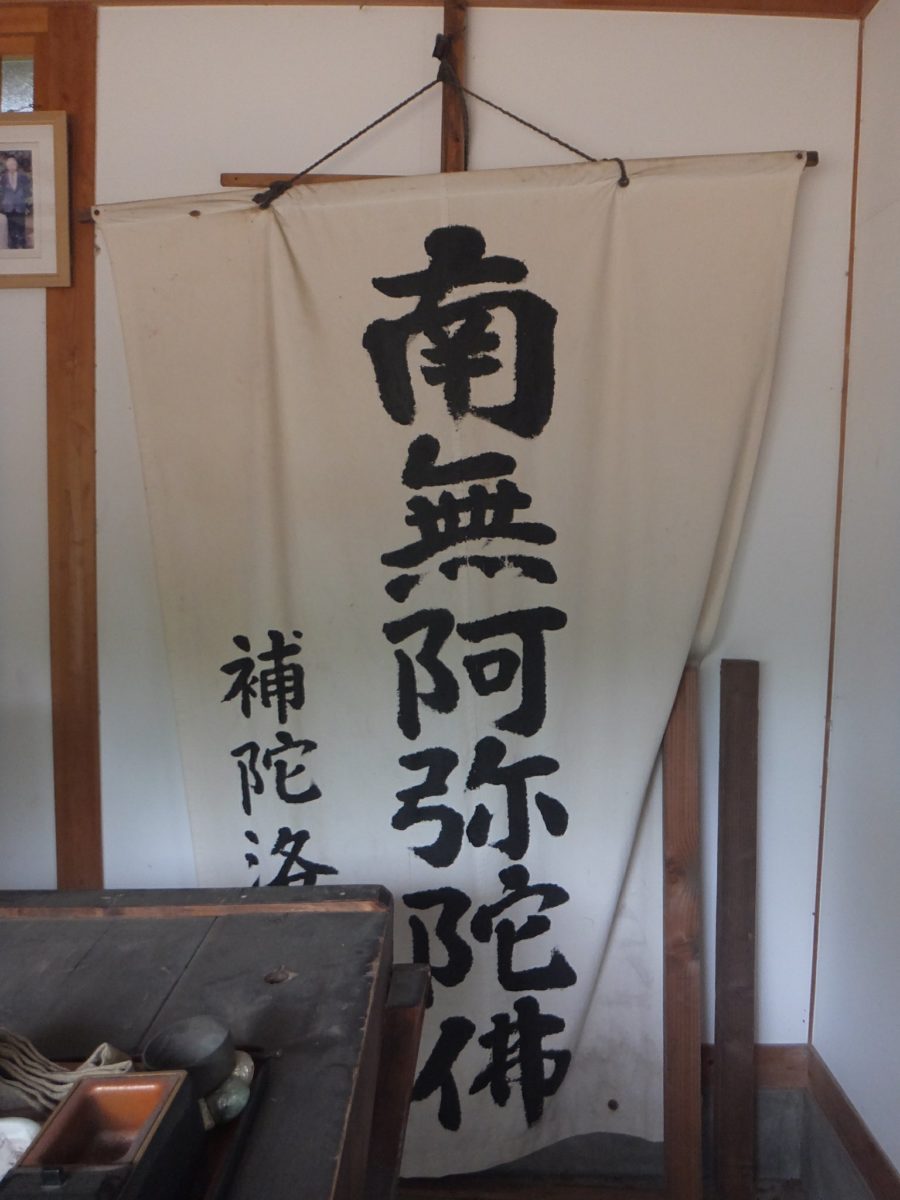 南無阿弥陀佛
補陀洛